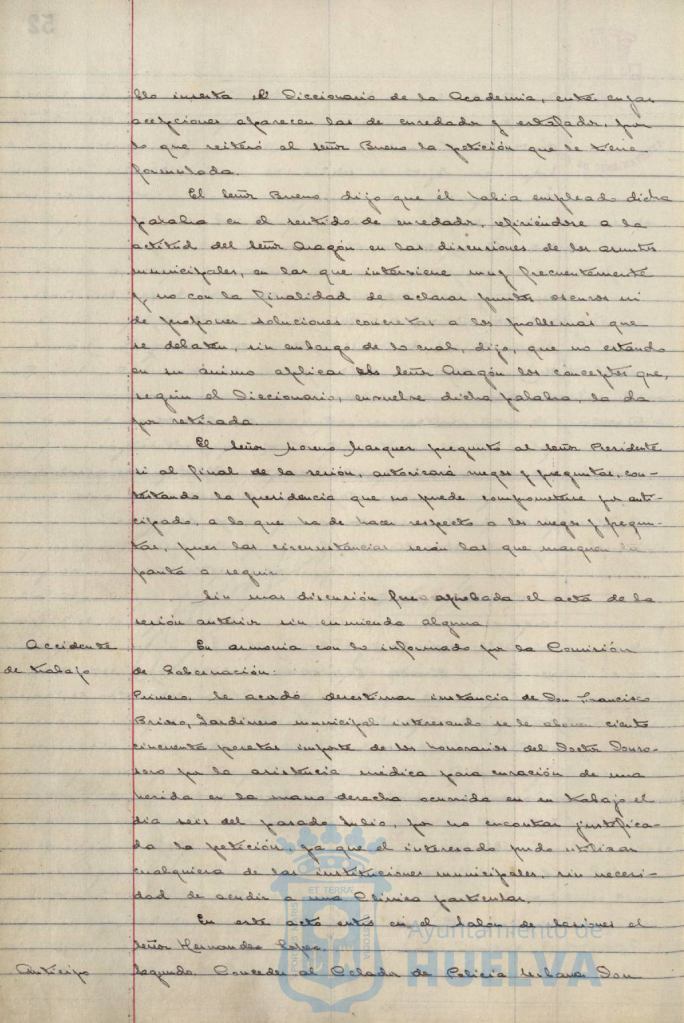 52
blo inserta el Diccionario de la Academia, entre cuyas
acepciones aparecen las de enredador y estafador, por
lo que reiteró al señor Bueno la petición que le tenía
formulada.
El señor Bueno dijo que él había empleado dicha
palabra en el sentido de enredador, refiriéndose a la
actitud del señor Aragón en las discusiones de los asuntos
municipales, en las que interviene muy frecuentemente
y no con la finalidad de aclarar puntos oscuros ni
de proponer soluciones concretas a los problemas que
se debaten, sin embargo de lo cual, dijo, que no estando
en su ánimo aplicar al señor Aragón los conceptos que,
según el Diccionario, envuelve dicha palabra, la da
por retirada.
El señor Moreno Marquez preguntó al señor Presidente
si al final de la sesión, autorizará ruegos y preguntas, con-
testando la presidencia que no puede comprometerse por anti-
cipado, a lo que ha de hacer respecto a los ruegos y pregun-
tas, pues las circunstancias serán las que marquen la
pauta a seguir.
Sin mas discusión fue aprobada el acta de la
sesión anterior sin enmienda alguna.
Accidente
de trabajo
En armonia con lo informado por la Comisión
de Gobernación:
Primero. Se acordó desestimar instancia de Don Francisco
Jardinero municipal interesando se le abonen ciento
cincuenta pesetas importe de los honorarios del Doctor
por la asistencia médica para curación de una
herida en la mano derecha ocurrida en su trabajo el
dia seis del pasado Julio, por no encontrar justifica-
da la petición, ya que el interesado pudo utilizar
cualquiera de las instituciones municipales, sin necesi-
dad de acudir a una Clínica particular.
En este acto entró en el Salón de Sesiones el
señor Hernandez Lopez.
Anticipo
Segundo. Conceder al Celador de Policia urbana Don
Ayuntamiento de
HUELVA